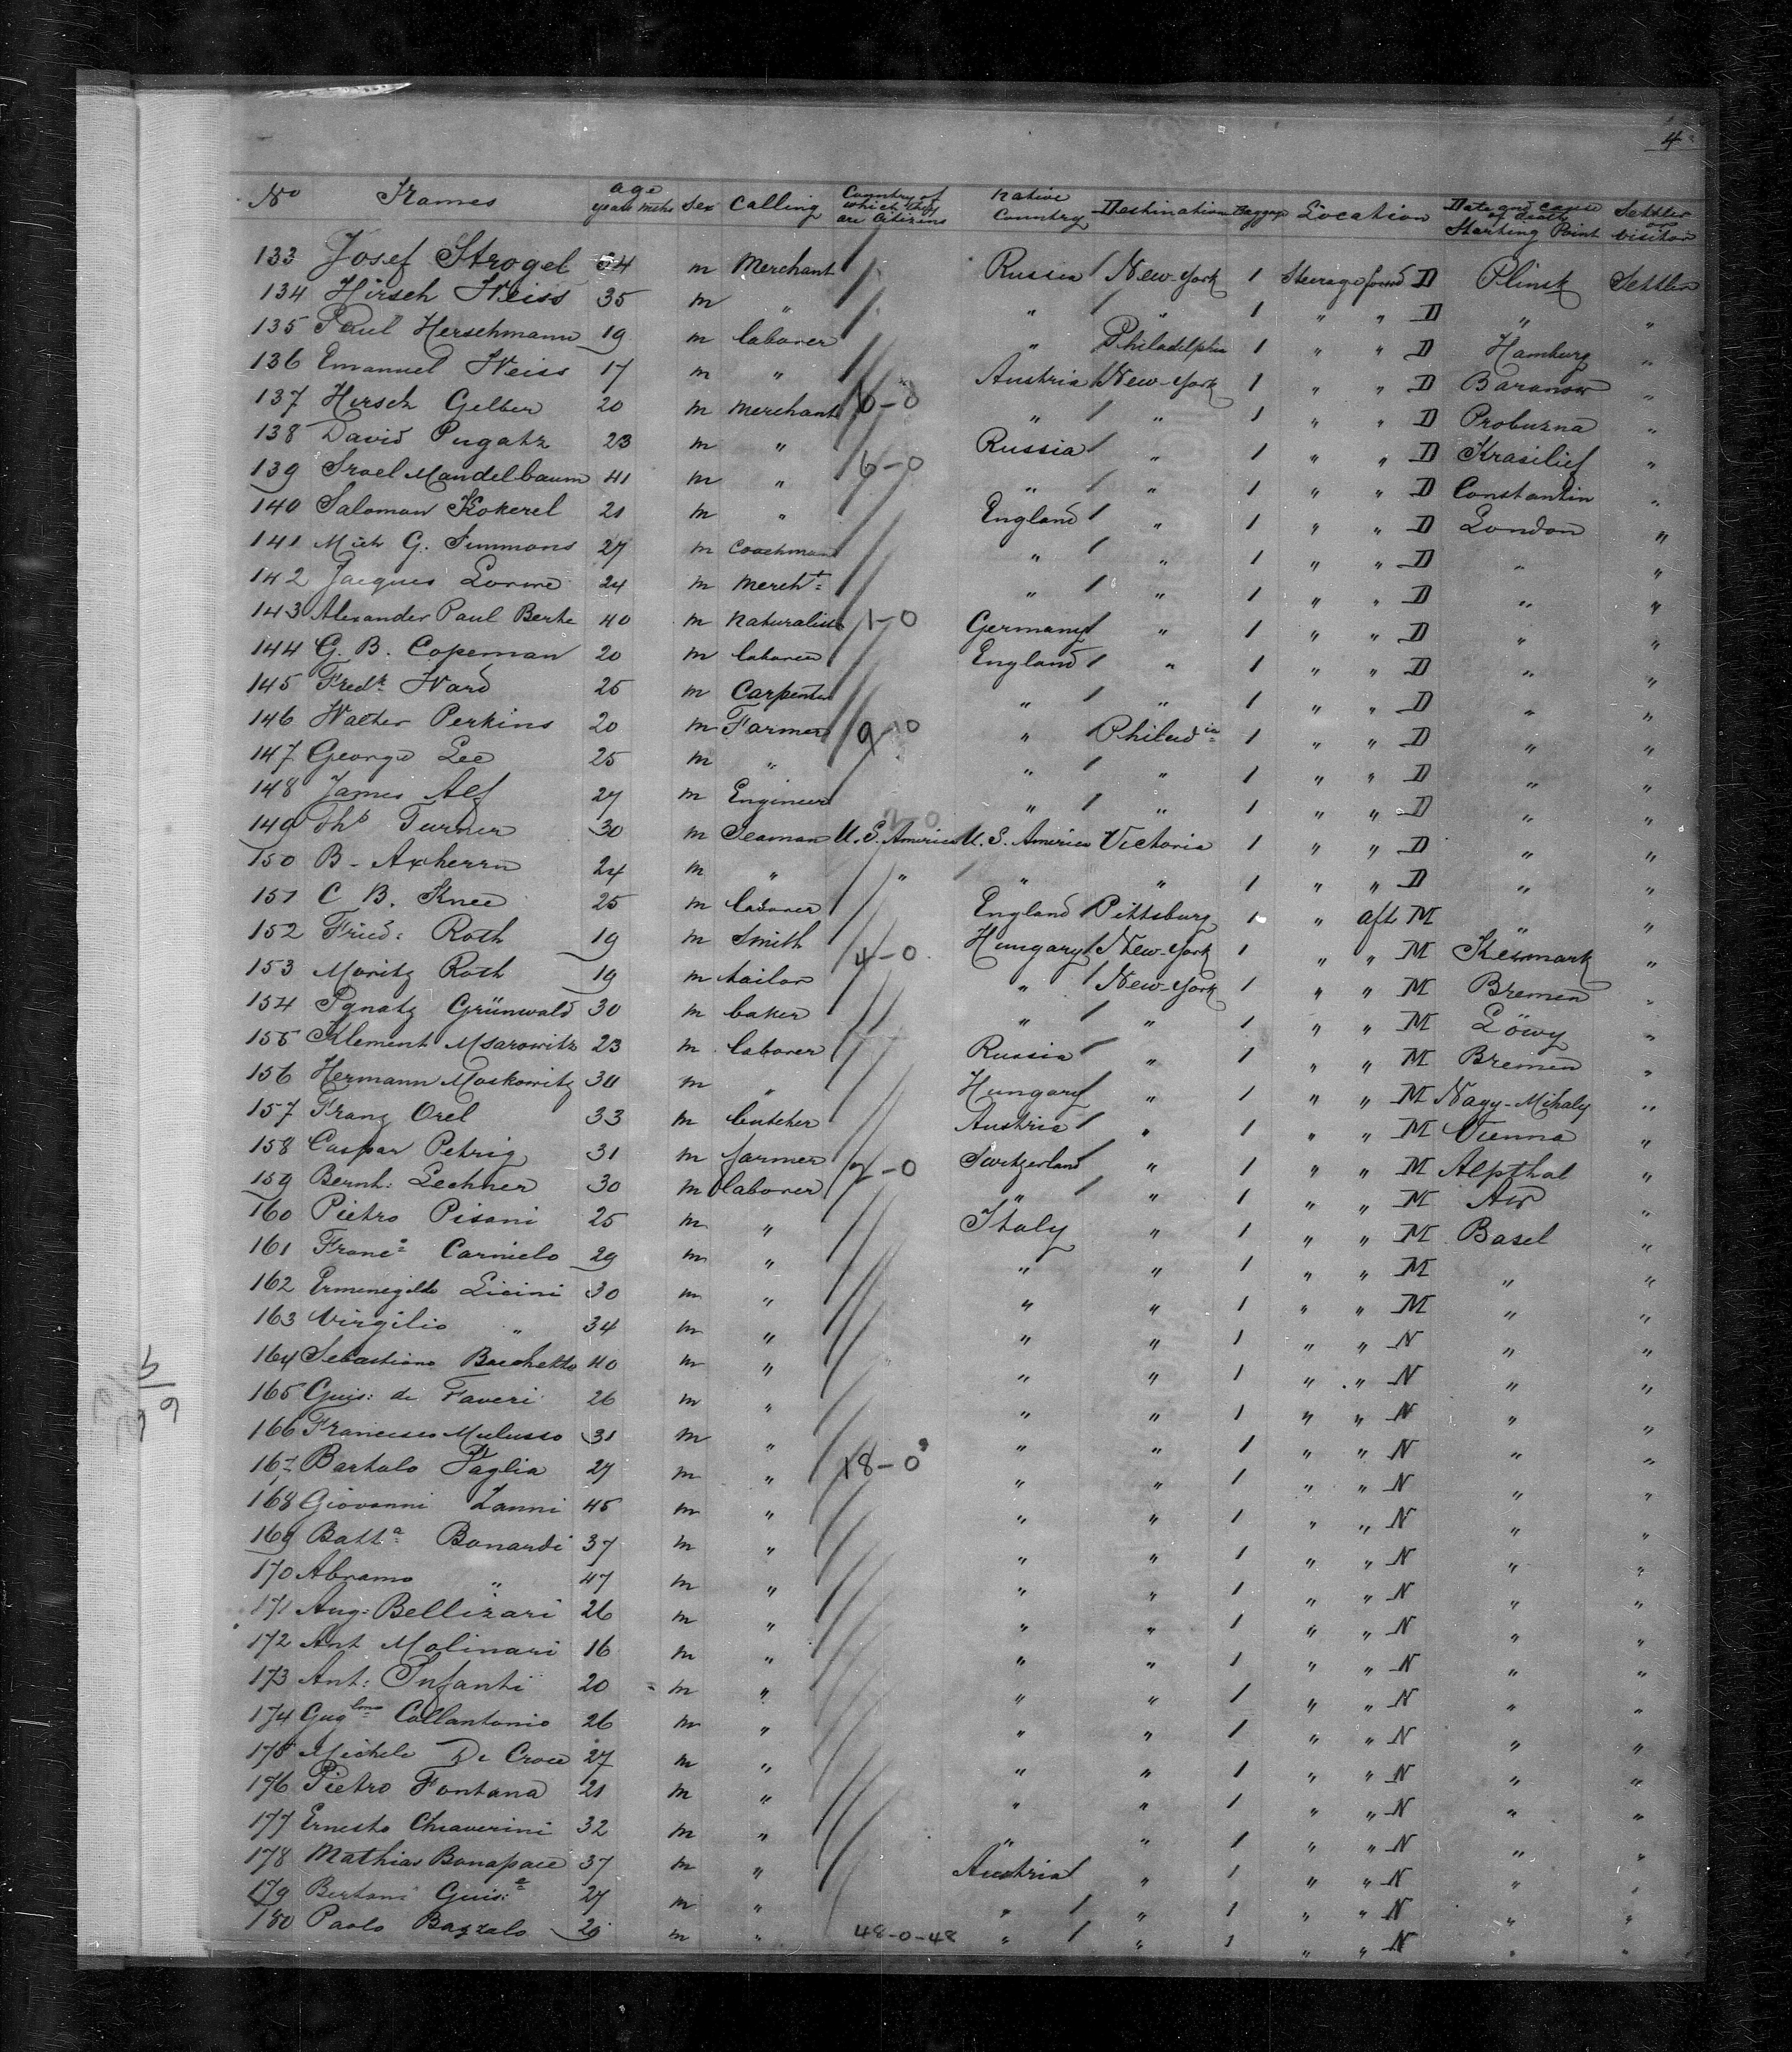 4
No Names age years mths Sex Calling Country of which they are Citizens Native Country Destination Baggage Location Date and cause of death Starting Point Settler or Visitor
133 Josef Strogel 34 m Merchant Russia New-York 1 Steerage forwd D Plinsk Settler
134 Hirsch Weiss 35 m " " " 1 " " D " "
135 Paul Herschmann 19 m laborer " Philadelphia 1 " " D Hamburg "
136 Emanuel Weiss 17 m " Austria New-York 1 " " D Baranow "
137 Hersch Gelber 20 m merchant 6-0 " " 1 " " D Probuzna "
138 David Pugatz 23 m " Russia " 1 " " D Krasilief "
139 Israel Mandelbaum 41 m " 6-0 " " 1 " " D Constantin "
140 Salomon Kokerel 21 m " England " 1 " " D London "
141 Mich G. Simmons 27 m Coachman " " 1 " " D " "
142 Jacques Lorme 24 m Mercht " " 1 " " D " "
143 Alexander Paul Berte 40 m Naturalist 1-0 Germany " 1 " " D " "
144 G. B. Copeman 20 m laborer England " 1 " " D " "
145 Fredk Ward 25 m Carpenter " " 1 " " D " "
146 Walter Perkins 20 m Farmer 9-0 " Philadia 1 " " D " "
147 George Lee 25 m " " " 1 " " D " "
148 James Alf 27 m Engineer " " 1 " " D " "
149 Ths Turner 30 m Seaman U.S. America 2-0 U.S. America Victoria 1 " " D " "
150 B. Axherrn 24 m " " " " 1 " " D " "
151 C B. Knee 25 m laborer England Pittsburg 1 " aft M " "
152 Fried: Roth 19 m Smith 4-0 Hungary New-York 1 " " M Kesmark "
153 Moritz Roth 19 m tailor " New-York 1 " " M Bremen "
154 Ignatz Grünwald 30 m baker " " 1 " " M Löwy "
155 Klement Msarowitz 23 m laborer Russia " 1 " " M Bremen "
156 Hermann Moskowitz 30 m " Hungary " 1 " " M Nagy-Mihaly "
157 Franz Orel 33 m butcher Austria " 1 " " M Vienna "
158 Caspar Petrig 31 m farmer 2-0 Switzerland " 1 " " M Alpthal "
159 Bernh: Lechner 30 m laborer " " 1 " " M Au "
160 Pietro Pisani 25 m " Italy " 1 " " M Basel "
161 Franco Carnielo 29 m " " " 1 " " M " "
162 Ermenegildo Licini 30 m " " " 1 " " M " "
163 Virgilio " 34 m " " " 1 " " N " "
164 Sebastiano Bacchetto 40 m " " " 1 " " N " "
165 Guis: de Faveri 26 m " " " 1 " " N " "
166 Francesco Mulusso 31 m " " " 1 " " N " "
167 Bartolo Paglia 27 m " 18-0 " " 1 " " N " "
168 Giovanni Zanni 45 m " " " 1 " " N " "
169 Batta Bonardi 37 m " " " 1 " " N " "
170 Abramo " 47 m " " " 1 " " N " "
171 Aug: Bellizari 26 m " " " 1 " " N " "
172 Ant Molinari 16 m " " " 1 " " N " "
173 Ant: Infanti 20 m " " " 1 " " N " "
174 Guglmo Collantonio 26 m " " " 1 " " N " "
175 Michele De Croce 27 m " " " 1 " " N " "
176 Pietro Fontana 21 m " " " 1 " " N " "
177 Ernesto Chiaverini 32 m " " " 1 " " N " "
178 Mathias Bonapace 37 m " Austria " 1 " " N " "
179 Bertoni Guis:e 27 m " " " 1 " " N " "
180 Paolo Bazzalo 20 m " 48-0-48 " " 1 " " N " "